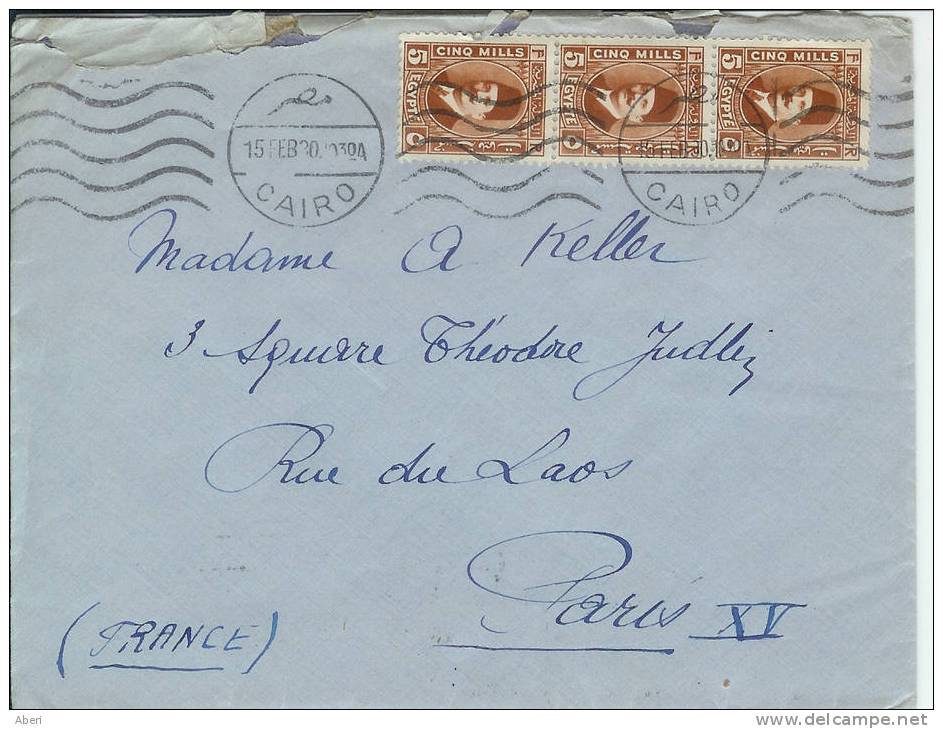 5 CINQ MILLS EGYPTE
5 CINQ MILLS EGYPTE
5 CINQ MILLS EGYPTE
مصر
15 FEB 30.1030A
CAIRO
CAIRO
Madame A Keller
3 Square Théodore Judlin
Rue du Laos
Paris XV
(FRANCE)
Aberi
http://www.delcampe.net